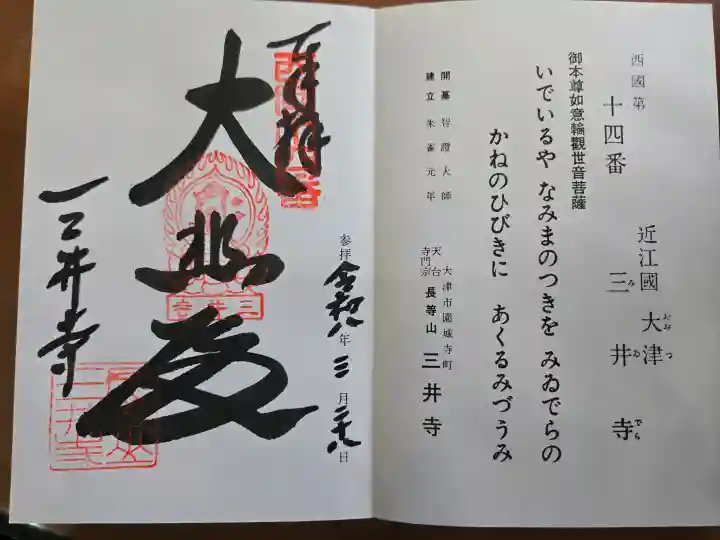 西國第
十四番
近江國 大津
おおつ
三井寺
みゐでら
御本尊如意輪觀世音菩薩
いでいるや なみまのつきを みゐでらの
かねのひびきに あくるみづうみ
開基 智證大師
建立 朱雀元年
大津市園城寺町
天台寺門宗
長等山 三井寺
奉拝
参拝 令和八年三月二十八日
大悲殿
三井寺